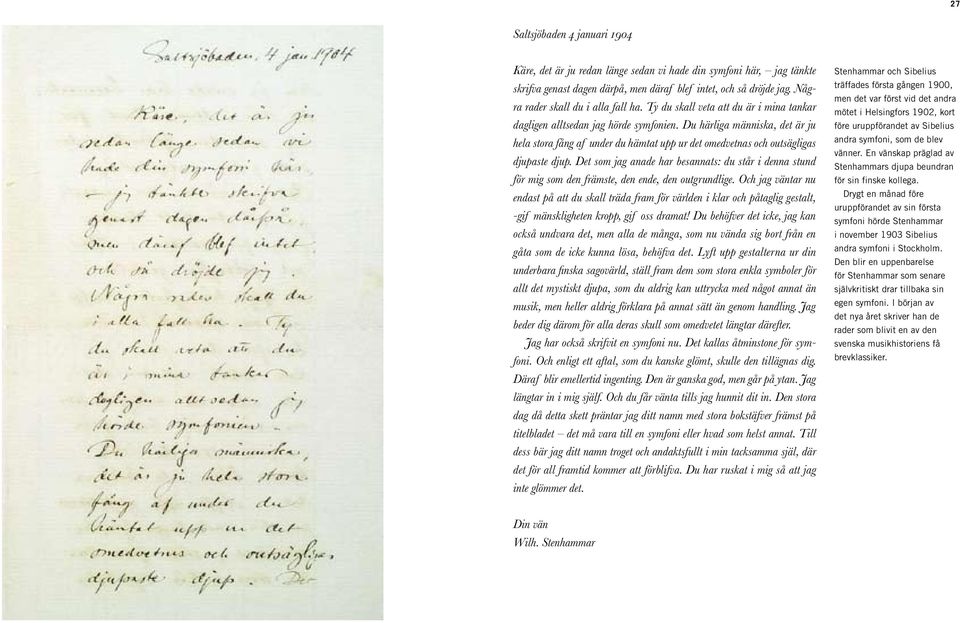 27
Saltsjöbaden, 4 jan 1904
Käre, det är ju
redan länge sedan vi
hade din symfoni här,
– jag tänkte skrifva
genast dagen därpå,
men däraf blef intet,
och så dröjde jag.
Några rader skall du
i alla fall ha. Ty
du skall veta att du
är i mina tankar
dagligen alltsedan jag
hörde symfonien.
Du härliga människa,
det är ju hela stora
fång af under du
hämtat upp ur det
omedvetnas och outsägligas
djupaste djup. Det
Saltsjöbaden 4 januari 1904
Käre, det är ju redan länge sedan vi hade din symfoni här, – jag tänkte
skrifva genast dagen därpå, men däraf blef intet, och så dröjde jag. Någ-
ra rader skall du i alla fall ha. Ty du skall veta att du är i mina tankar
dagligen alltsedan jag hörde symfonien. Du härliga människa, det är ju
hela stora fång af under du hämtat upp ur det omedvetnas och outsägligas
djupaste djup. Det som jag anade har besannats: du står i denna stund
för mig som den främste, den ende, den outgrundlige. Och jag väntar nu
endast på att du skall träda fram för världen i klar och påtaglig gestalt,
-gif mänskligheten kropp, gif oss dramat! Du behöfver det icke, jag kan
också undvara det, men alla de många, som nu vända sig bort från en
gåta som de icke kunna lösa, behöfva det. Lyft upp gestalterna ur din
underbara finska sagovärld, ställ fram dem som stora enkla symboler för
allt det mystiskt djupa, som du aldrig kan uttrycka med något annat än
musik, men heller aldrig förklara på annat sätt än genom handling. Jag
beder dig därom för alla deras skull som omedvetet längtar därefter.
Jag har också skrifvit en symfoni nu. Det kallas åtminstone för sym-
foni. Och enligt ett aftal, som du kanske glömt, skulle den tillägnas dig.
Däraf blir emellertid ingenting. Den är ganska god, men går på ytan. Jag
längtar in i mig själf. Och du får vänta tills jag hunnit dit in. Den stora
dag då detta skett präntar jag ditt namn med stora bokstäfver främst på
titelbladet – det må vara till en symfoni eller hvad som helst annat. Till
dess bär jag ditt namn troget och andaktsfullt i min tacksamma själ, där
det för all framtid kommer att förblifva. Du har ruskat i mig så att jag
inte glömmer det.
Din vän
Wilh. Stenhammar
Stenhammar och Sibelius
träffades första gången 1900,
men det var först vid det andra
mötet i Helsingfors 1902, kort
före uruppförandet av Sibelius
andra symfoni, som de blev
vänner. En vänskap präglad av
Stenhammars djupa beundran
för sin finske kollega.
Drygt en månad före
uruppförandet av sin första
symfoni hörde Stenhammar
i november 1903 Sibelius
andra symfoni i Stockholm.
Den blir en uppenbarelse
för Stenhammar som senare
självkritiskt drar tillbaka sin
egen symfoni. I början av
det nya året skriver han de
rader som blivit en av den
svenska musikhistoriens få
brevklassiker.